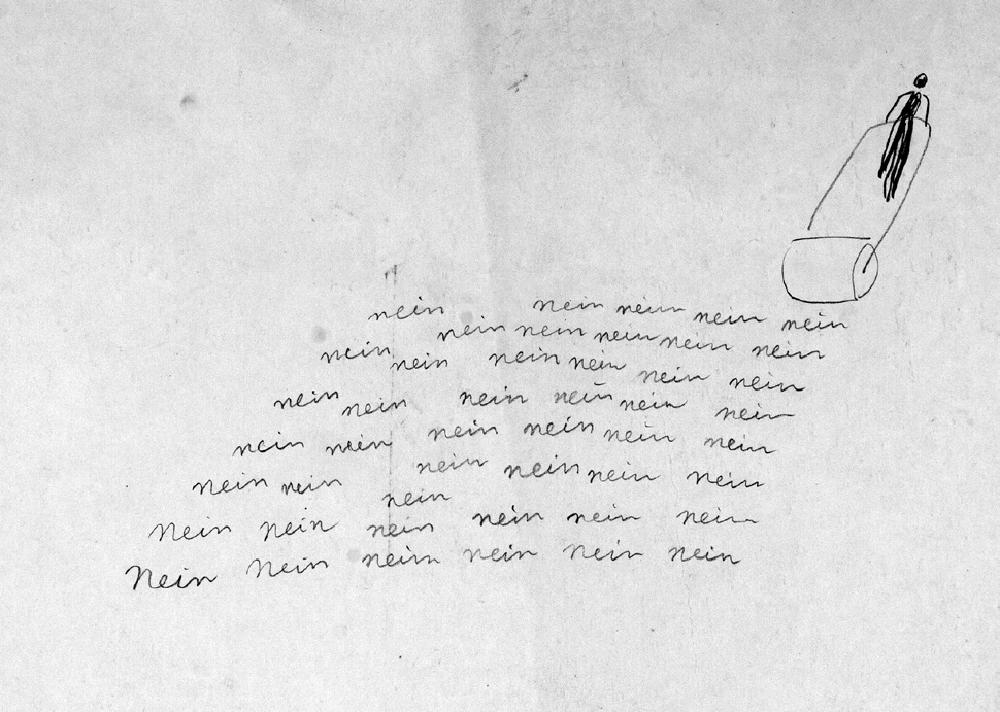 nein nein nein nein nein
nein nein nein nein nein nein
nein nein nein nein nein
nein nein nein nein nein nein
nein nein nein nein nein nein
nein nein nein nein nein nein
nein
Nein nein nein nein nein nein
Nein Nein nein nein nein nein